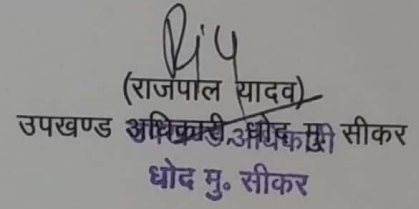 (राजपाल यादव)
उपखण्ड अधिकारी, धोद मु. सीकर
धोद मु. सीकर